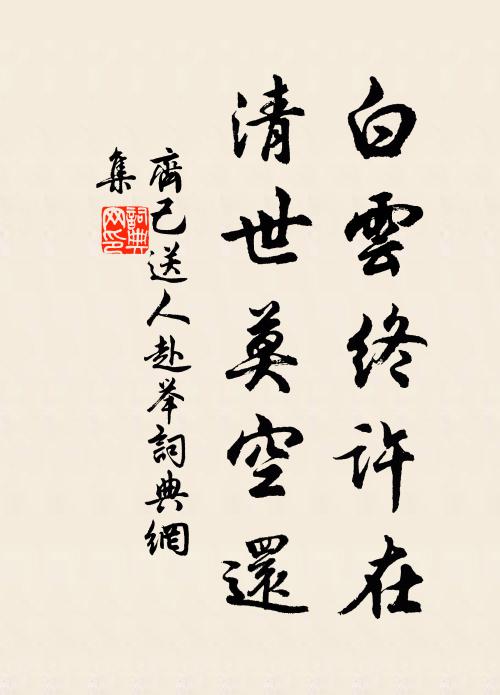 白雲終許在
清世莫空還
齊己送人赴举詞典網
集
詞典
网印